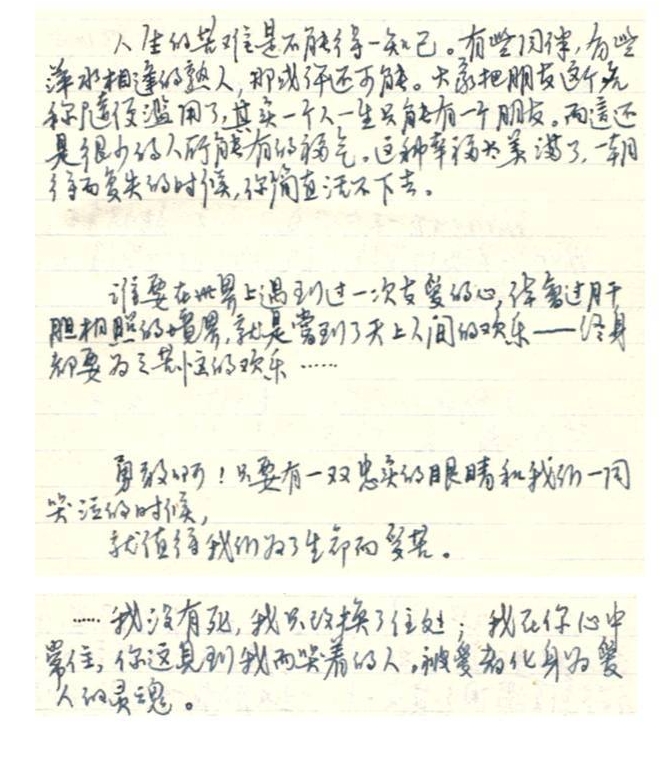 人生的苦难是不能得一知己。有些同伴，有些
萍水相逢的熟人，那或许还可能。大家把朋友这个名
称随便滥用了，其实一个人一生只能有一个朋友。而這还
是很少的人所能有的福气。这种幸福太美满了，一朝
得而复失的时候，你简直活不下去。
谁要在世界上遇到过一次友爱的心，体会过肝
胆相照的境界，就是尝到了天上人间的欢乐——终身
都要为之苦恼的欢乐……
勇敢啊！只要有一双忠实的眼睛和我们一同
哭泣的时候，
就值得我们为了生命而受苦。
……我没有死，我只改换了住处；我在你心中
常住，你这見到我而哭着的人。被愛者化身为愛
人的灵魂。